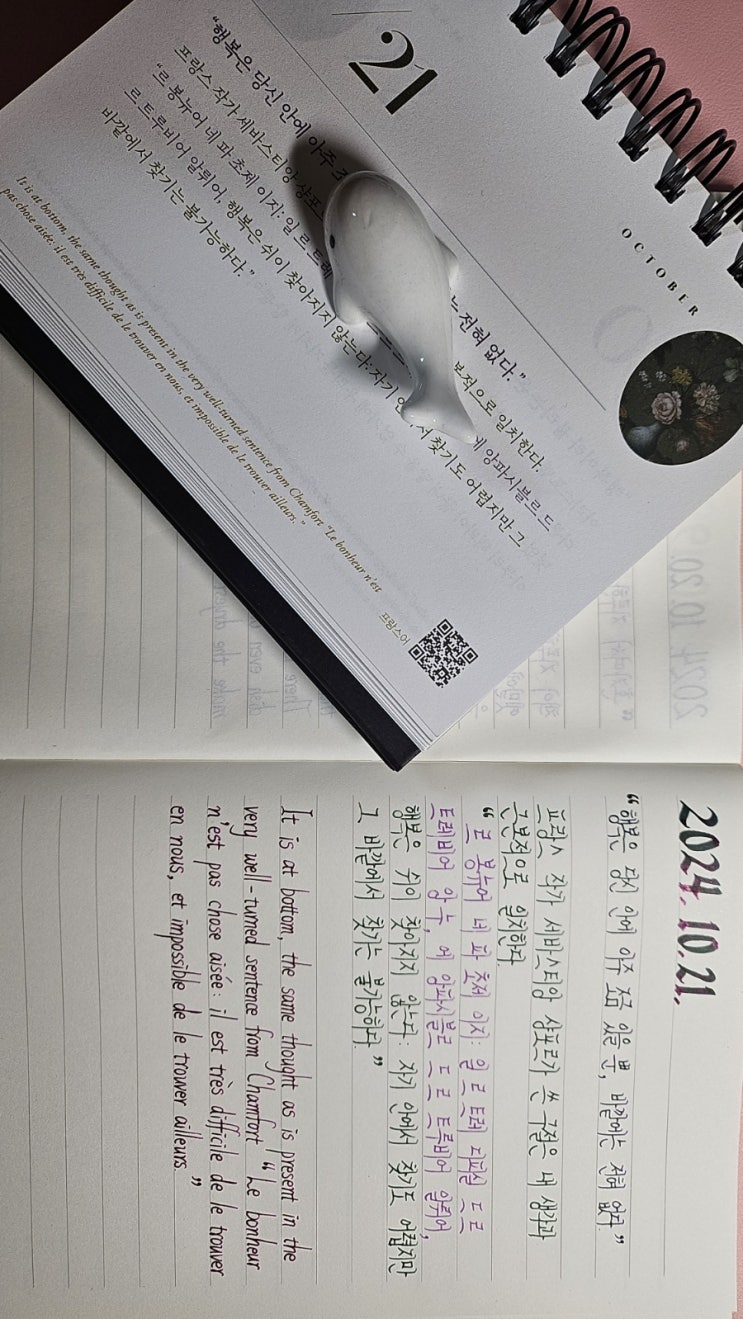 OCTOBER
/21
“행복은 당신 안에 아주 는 전혀 없다.”
프랑스 작가 세바스티앙 샹포 본적으로 일치한다.
“르 봉뉴어 네 파 쵸제 이지: 일 르 트레 에 앙파시블르 드
르 트루비어 알뤼어, 행복은 쉬이 찾아지지 않는다: 자기 서 찾기도 어렵지만 그
바깥에서 찾기는 불가능하다.”
It is at bottom, the same thought as is present in the very well-turned sentence from Chamfort “Le bonheur n'est
pas chose aisée: il est très difficile de le trouver en nous, et impossible de le trouver ailleurs.”
프랑스어
2024. 10. 20.
2024. 10. 21.
“행복은 당신 안에 아주 조금 있을 뿐, 바깥에는 전혀 없다.”
프랑스 작가 세바스티앙 샹포르가 쓴 구절은 내 생각과
근본적으로 일치한다.
“르 봉뉴어 네 파 쵸제 이지: 일 르 트레 디피실 드 르
트레비어 앙 누, 에 앙파시블르 드 르 트루비어 알뤼어,
행복은 쉬이 찾아지지 않는다: 자기 안에서 찾기도 어렵지만
그 바깥에서 찾기는 불가능하다.”
It is at bottom, the same thought as is present in the
very well-turned sentence from Chamfort “Le bonheur
n'est pas chose aisée: il est très difficile de le trouver
en nous, et impossible de le trouver ailleurs.”